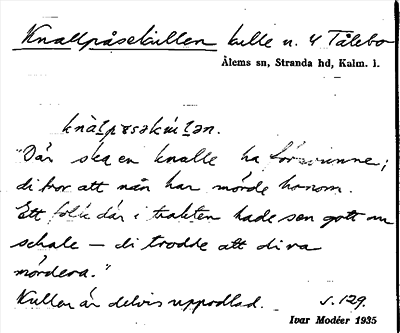 Knallpåsekullen kulle n. 4 Tålebo
Ålems sn, Stranda hd, Kalm. l.
knàl̲pɤsəkúl̲ən.
"Där ska en knalle ha försvunne;
di tror att nån har mörde honom.
Ett folk där i trakten hade sen gott om
schale — di trodde att di va
mördera."
Kullen är delvis uppodlad. s. 129.
Ivar Modéer 1935